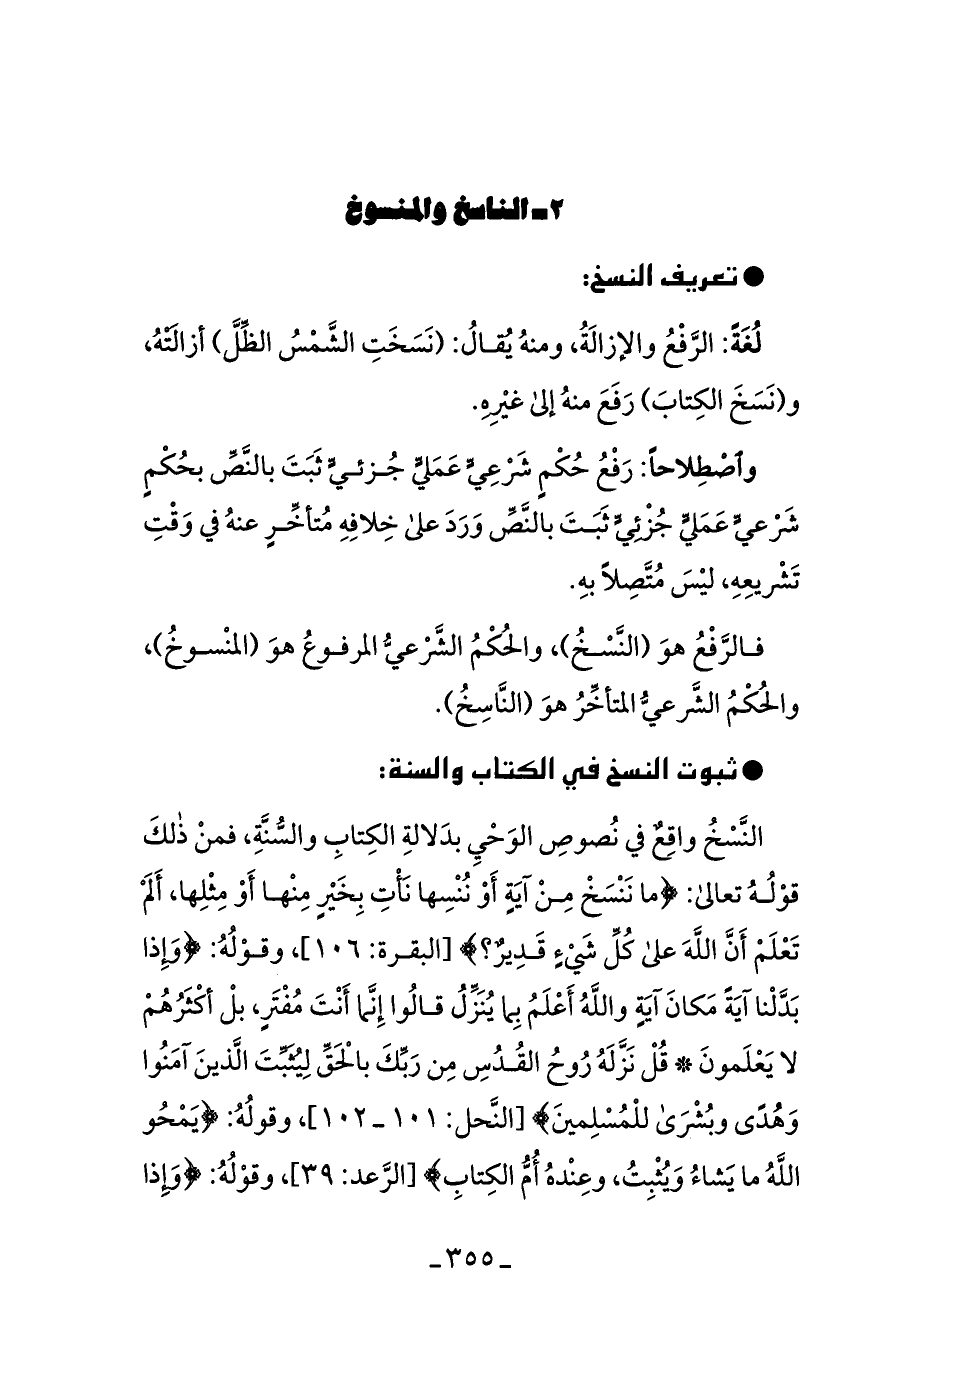 ٢ـ الناسخ والمنسوخ
● تعريف النسخ:
لُغَةً: الرَّفْعُ والإزالَةُ، ومنهُ يُقـالُ: (نَسَخَتِ الشَّمْسُ الظِّلَّ) أزالَتْهُ،
و(نَسَخَ الكِتابَ) رَفَعَ منهُ إلىٰ غيْرِهِ.
وٱصْطِلاحاً: رَفْعُ حُكْمٍ شَرْعِيٍّ عَمَليٍّ جُـزئـيٍّ ثَبَتَ بالنَّصِّ بحُكْمٍ
شَرْعيٍّ عَمَليٍّ جُزْئِيٍّ ثَبَـتَ بالنَّصِّ وَرَدَ علىٰ خِلافِهِ مُتأخِّـرٍ عنهُ في وَقْتِ
تَشْريعِهِ، ليْسَ مُتَّصِلاً بهِ.
فـالرَّفْعُ هوَ (النَّسْـخُ)، والحُكْمُ الشَّرْعيُّ المرفـوعُ هوَ (المنْسـوخُ)،
والحُكْمُ الشَّرعيُّ المتأخِّرُ هوَ (النَّاسِخُ).
● ثبوت النسخ في الكتاب والسنة:
النَّسْخُ واقِعٌ في نُصوصِ الوَحْيِ بدَلالةِ الكِتابِ والسُّنَّةِ، فمنْ ذٰلكَ
قوْلُـهُ تعالىٰ: ﴿ما نَنْسَخْ مِـنْ آيَةٍ أَوْ نُنْسِها نَأْتِ بِخَيْرٍ مِنْهـا أَوْ مِثْلِها، أَلَمْ
تَعْلَمْ أَنَّ اللَّهَ علىٰ كُلِّ شَيْءٍ قَـدِيرٌ؟﴾ [البقـرة: ١٠٦]، وقـوْلُهُ: ﴿وَإِذا
بَدَّلْنا آيَةً مَكانَ آيَةٍ واللَّهُ أَعْلَمُ بِما يُنَزِّلُ قـالُوا إِنَّما أَنْتَ مُفْتَرٍ، بلْ أكْثَرُهُمْ
لا يَعْلَمونَ * قُلْ نَزَّلَهُ رُوحُ القُـدُسِ مِن رَبِّكَ بالْحَقِّ لِيُثَبِّتَ الَّذينَ آمَنُوا
وَهُدًى وبُشْرَىٰ للْمُسْلِمينَ﴾ [النَّحل: ١٠١ ـ ١٠٢]، وقولُهُ: ﴿يَمْحُو
اللَّهُ ما يَشاءُ وَيُثْبِتُ، وعِنْدهُ أُمُّ الكِتابِ﴾ [الرَّعد: ٣٩]، وقوْلُهُ: ﴿وَإِذا
ـ ٣٥٥ ـ